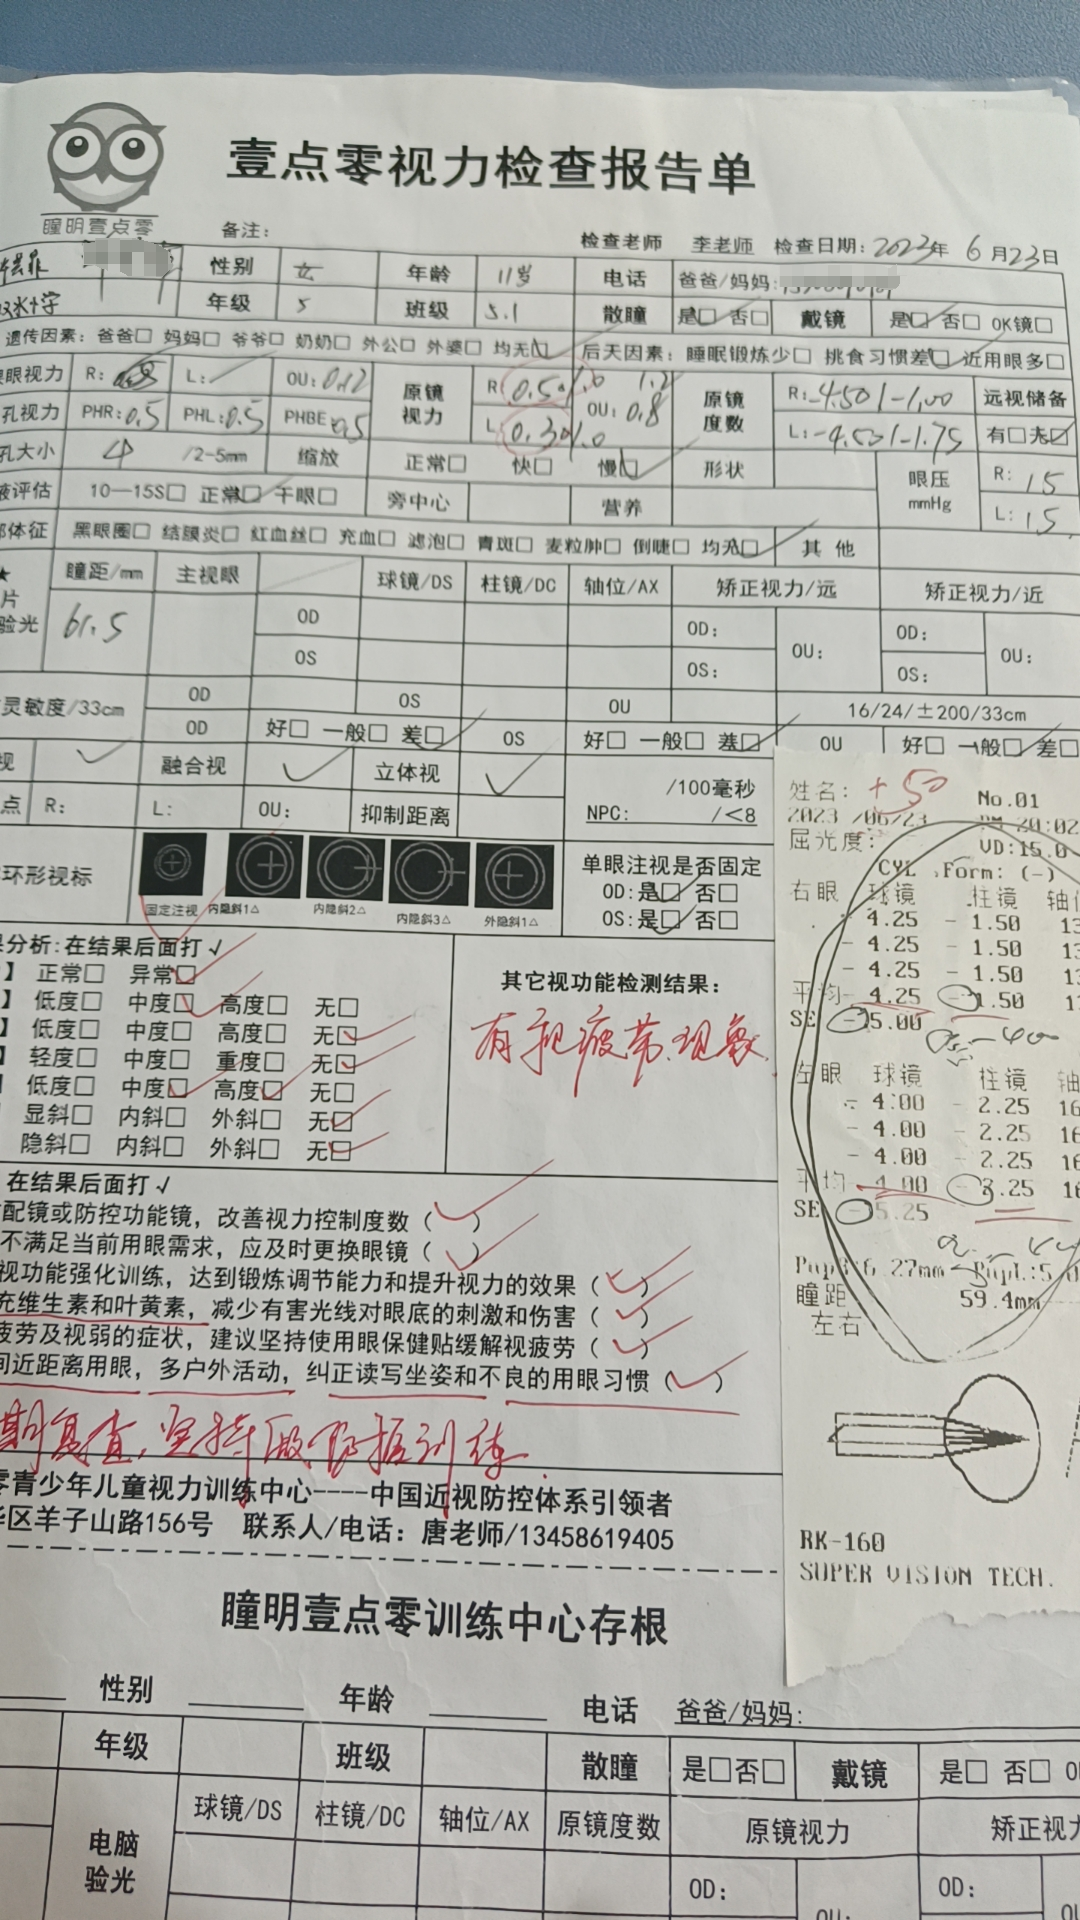 壹点零视力检查报告单
瞳明壹点零
备注: 检查老师 李老师 检查日期: 2023年 6月23日
性别 女 年龄 11岁 电话 爸爸/妈妈:
年级 5 班级 5.1 散瞳 是□ 否□ 戴镜 是□ 否□ OK镜□
遗传因素: 爸爸□ 妈妈□ 爷爷□ 奶奶□ 外公□ 外婆□ 均无□ 后天因素: 睡眠锻炼少□ 挑食习惯差□ 近用眼多□
眼视力 R: L: OU: 0.12 原镜视力 R 0.5 1.0 1.2 OU: 0.8 原镜度数 R: -4.50/-1.00 远视储备
孔视力 PHR: 0.5 PHL: 0.5 PHBE: 0.5 L 0.3 1.0 L: -4.50/-1.75 有□ 无□
孔大小 4 /2-5mm 缩放 正常□ 快□ 慢□ 形状 眼压 mmHg R: 15
液评估 10—15S□ 正常□ 干眼□ 旁中心 营养 L: 15
部体征 黑眼圈□ 结膜炎□ 红血丝□ 充血□ 滤泡□ 青斑□ 麦粒肿□ 倒睫□ 均无□ 其他
★ 瞳距/mm 主视眼 球镜/DS 柱镜/DC 轴位/AX 矫正视力/远 矫正视力/近
片
验光 61.5 OD OD: OU: OD: OU:
OS OS: OS:
灵敏度/33cm OD OS OU 16/24/±200/33cm
OD 好□ 一般□ 差□ OS 好□ 一般□ 差□ OU 好□ 一般□ 差□
视 ✓ 融合视 ✓ 立体视 ✓ /100毫秒
点 R: L: OU: 抑制距离 NPC: /<8
环形视标 固定注视 内隐斜1△ 内隐斜2△ 内隐斜3△ 外隐斜1△
单眼注视是否固定
OD: 是□ 否□
OS: 是□ 否□
果分析: 在结果后面打√
】 正常□ 异常□
】 低度□ 中度□ 高度□ 无□
】 低度□ 中度□ 高度□ 无□
】 轻度□ 中度□ 重度□ 无□
低度□ 中度□ 高度□ 无□
显斜□ 内斜□ 外斜□ 无□
隐斜□ 内斜□ 外斜□ 无□
其它视功能检测结果:
有视疲劳现象.
在结果后面打√
配镜或防控功能镜，改善视力控制度数（✓）
不满足当前用眼需求，应及时更换眼镜（✓）
视功能强化训练，达到锻炼调节能力和提升视力的效果（✓）
充维生素和叶黄素，减少有害光线对眼底的刺激和伤害（✓）
疲劳及视弱的症状，建议坚持使用眼保健贴缓解视疲劳（✓）
间近距离用眼，多户外活动，纠正读写坐姿和不良的用眼习惯（✓）
期复查，坚持做防控训练.
零青少年儿童视力训练中心----中国近视防控体系引领者
华区羊子山路156号 联系人/电话: 唐老师/13458619405
姓名: +50 No.01
2023 /06/23 PM 20:02
屈光度: VD:15.0
CYL Form: (-)
右眼 球镜 柱镜 轴
- 4.25 - 1.50 13
- 4.25 - 1.50 13
- 4.25 - 1.50 13
平均- 4.25 - 1.50 1
SE -5.00
左眼 球镜 柱镜 轴
- 4.00 - 2.25 16
- 4.00 - 2.25 16
- 4.00 - 2.25 16
平均- 4.00 - 2.25 1
SE -5.25
PupR:6.27mm PupL:5.0
瞳距 59.4mm
左右
RK-160
SUPER VISION TECH.
瞳明壹点零训练中心存根
性别 年龄 电话 爸爸/妈妈:
年级 班级 散瞳 是□否□ 戴镜 是□ 否□
电脑验光 球镜/DS 柱镜/DC 轴位/AX 原镜度数 原镜视力 矫正视力
OD: OD:
OU: